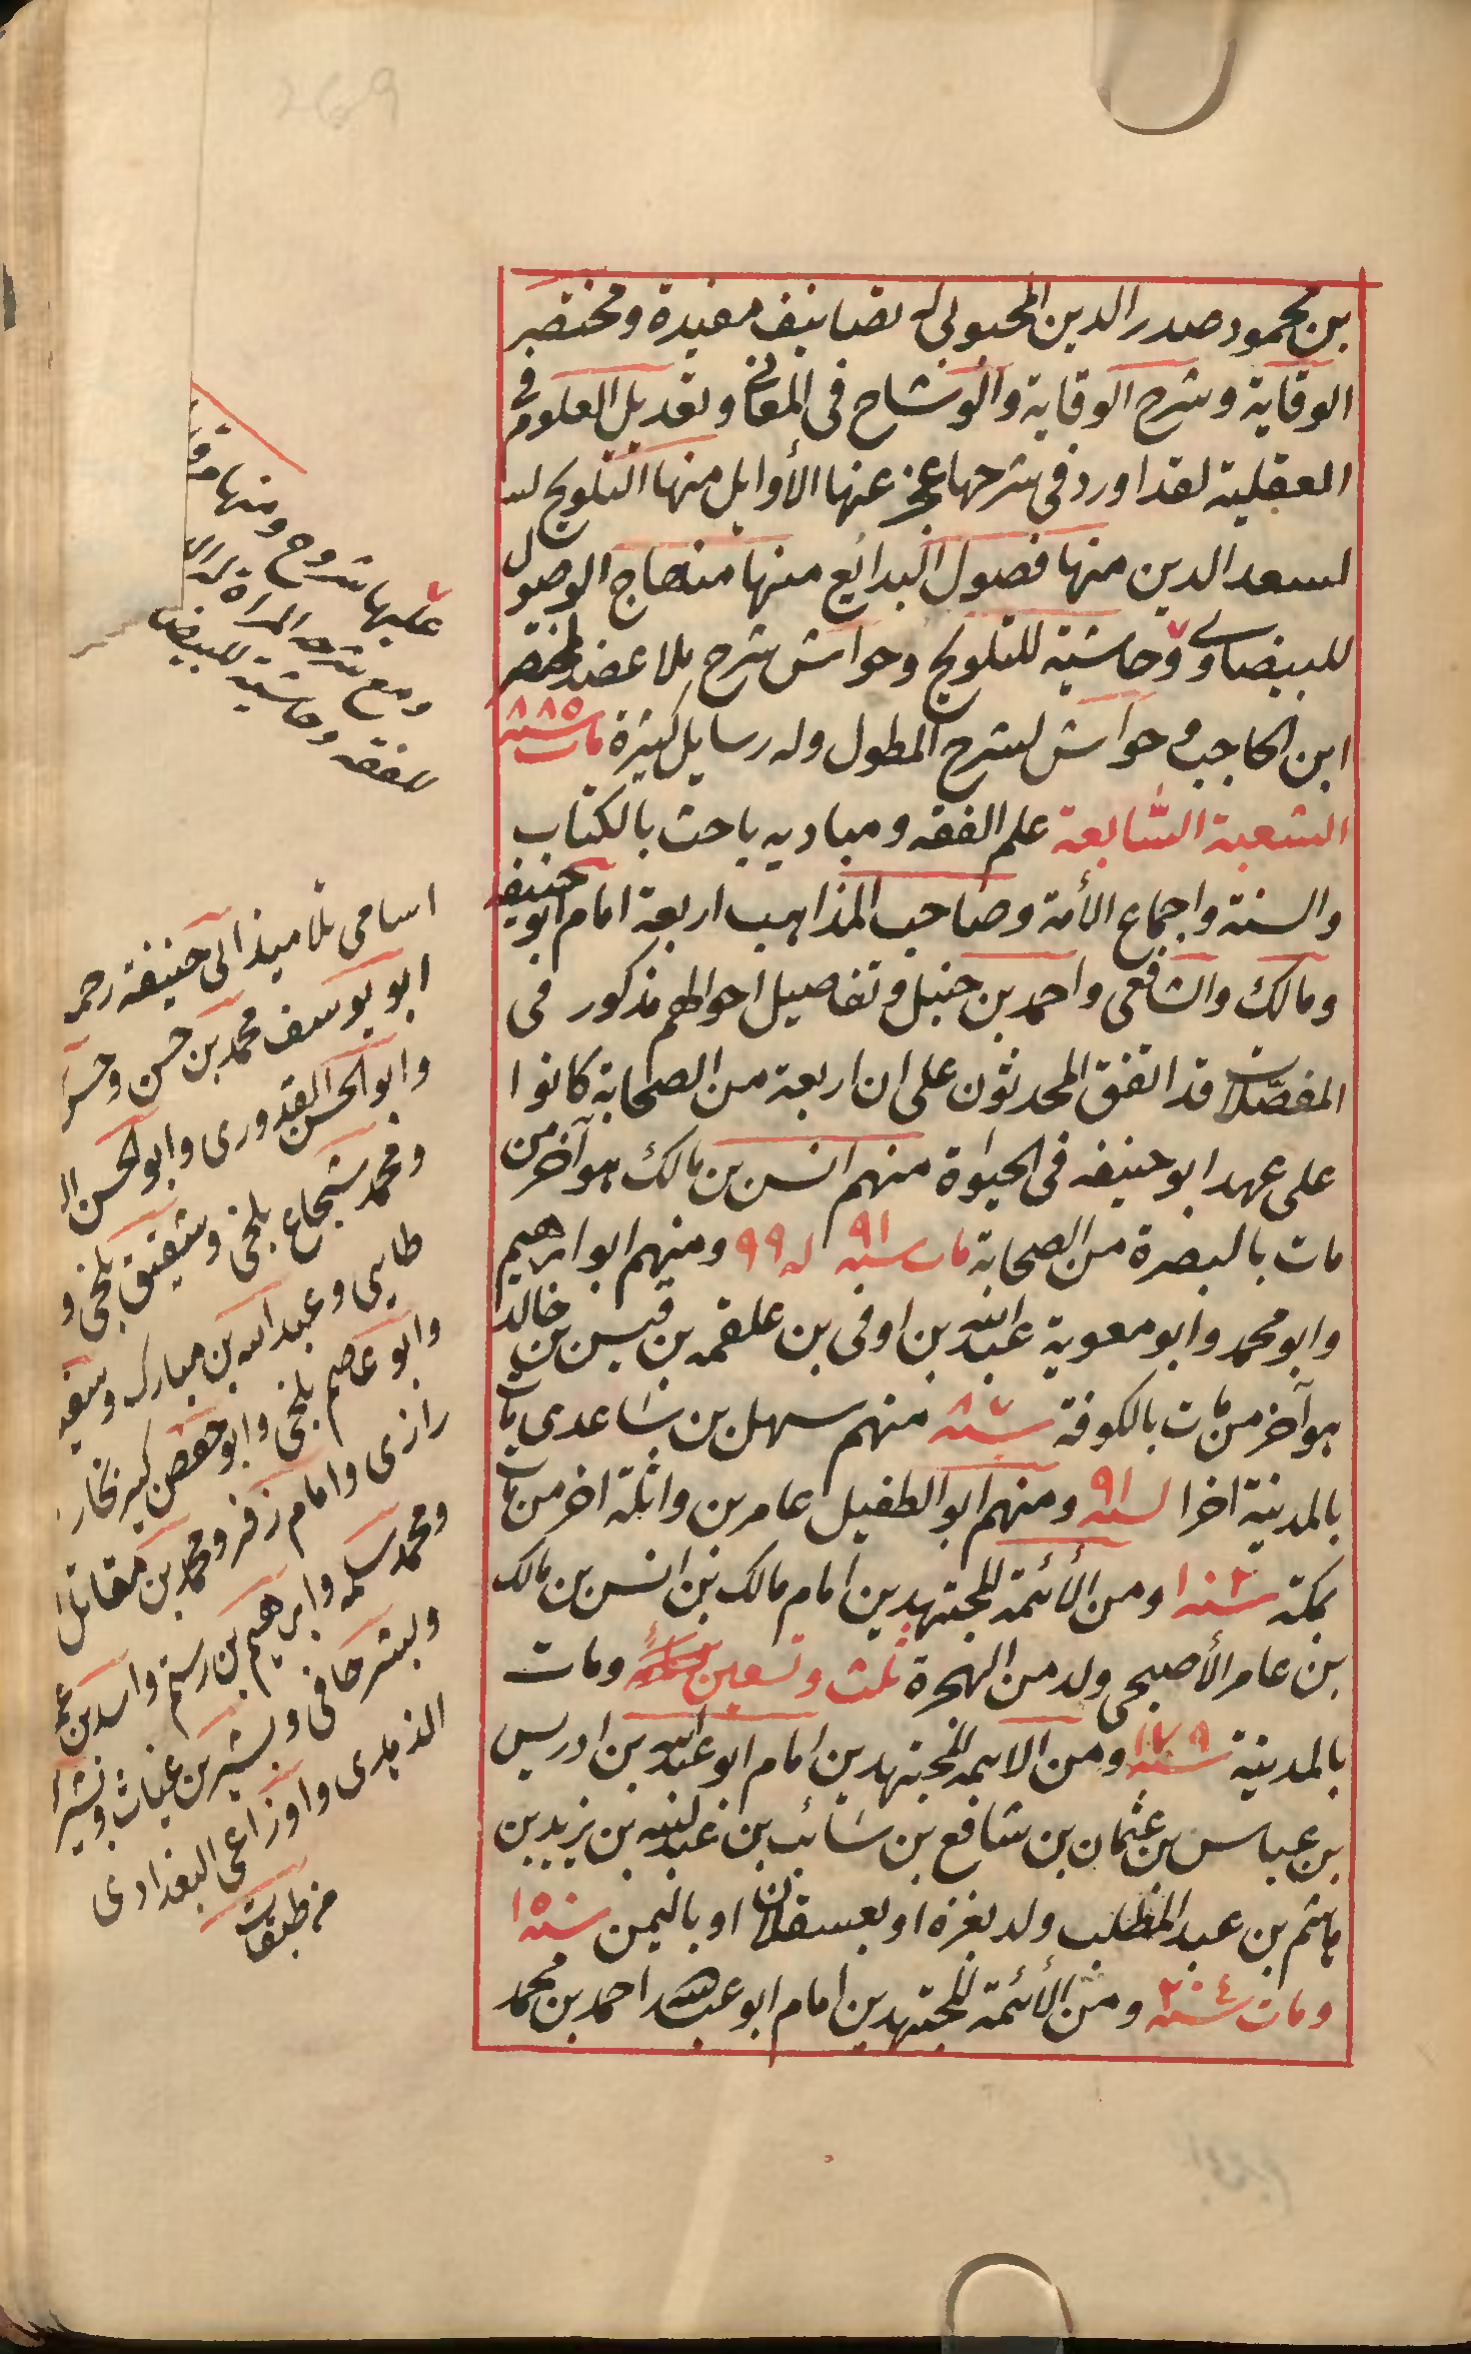 بن محمود صدر الدين المحبوبى له تصانيف مفيدة ومختصر
الوقاية وشرح الوقاية والوشاح فى المعانى وتعديل العلوم فى
العقلية لقد اورد فى شرحها عجز عنها الأوايل منها التلويح لسـ
لسعد الدين منها فصول البدائع منها منهاج الوصول
للبيضاوى وحاشية للتلويح وحواش شرح بلا عضد لمختصر
ابن الحاجب و حواش لشرح المطول وله رسايل كثيرة مات سنه ٨٨٥
الشعبة السّابعة علم الفقه ومباديه باحث بالكتاب
والسنة واجماع الأمة وصاحب المذاهب اربعة امام ابو حنيفه
ومالك والشافعى واحمد بن حنبل وتفاصيل احوالهم مذكور فى
المفصّلات قد اتفق المحدثون على ان اربعة من الصحابة كانوا
على عهد ابو حنيفه فى الحيوة منهم انس بن مالك هو آخر من
مات بالبصرة من الصحابة مات سنه ٩١ له ٩٩ ومنهم ابو ابرهيم
وابو محمد وابو معوية عبد الله بن اوفى بن علقمه بن قيس بن خالد
هو آخر من مات بالكوفة سنه ٨٧ منهم سهل بن ساعدى مات
بالمدينة اخرا لسنه ٩١ ومنهم ابو الطفيل عامر بن واثلة اخر من مات
بمكة سنه ١٠٢ ومن الأئمة المجتهدين امام مالك بن انس بن مالك
بن عامر الأصبحى ولد من الهجرة ثلث وتسعين ومات
بالمدينة سنه ١٧٩ ومن الايمه المجتهدين امام ابو عبد الله بن ادريس
بن عباس بن عثمان بن شافع بن سَائب بن عبد الله بن يزيد بن
هاشم بن عبد المطلب ولد بغزه او بعسقلان او باليمن سنه ١٥٠
ومات سنه ٢٠٤ ومن الأئمة المجتهدين امام ابو عبد الله احمد بن محمد
عليها شروح ومنها
ومع شرحه المراة
للفقه وحاشية للبيضا
اسامى تلاميذ ابى حنيفة رحمه
ابو يوسف محمد بن حسن وحسن
وابو الحسن القدورى وابو الحسن
ومحمد شجاع بلخى وشقيق بلخى و
طايى وعبد الله بن مبارك وسفيـ
وابو عاصم بلخى وابو حفص كبير بخار
رازى وامام زفر ومحمد بن مقاتل
ومحمد سلمه وابرهيم بن رستم واسد بن عمـ
وبشر حافى وبشير بن غياث وبشر
واوزاعى البغدادى
من طبقات